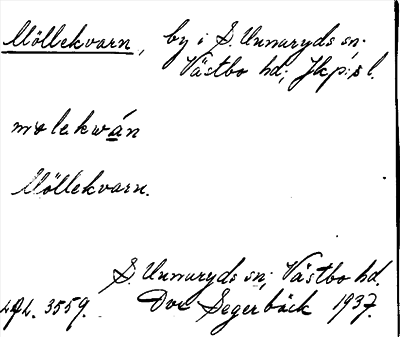 Möllekvarn, by i S. Unnaryds sn;
Västbo hd; Jkp:s l.
mølekwán
Möllekvarn.
S. Unnaryds sn; Västbo hd.
3559. Segerbäck 1937.